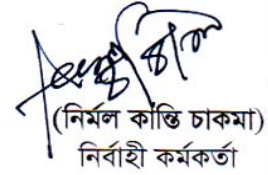 (নির্মল কান্তি চাকমা)
নির্বাহী কর্মকর্তা